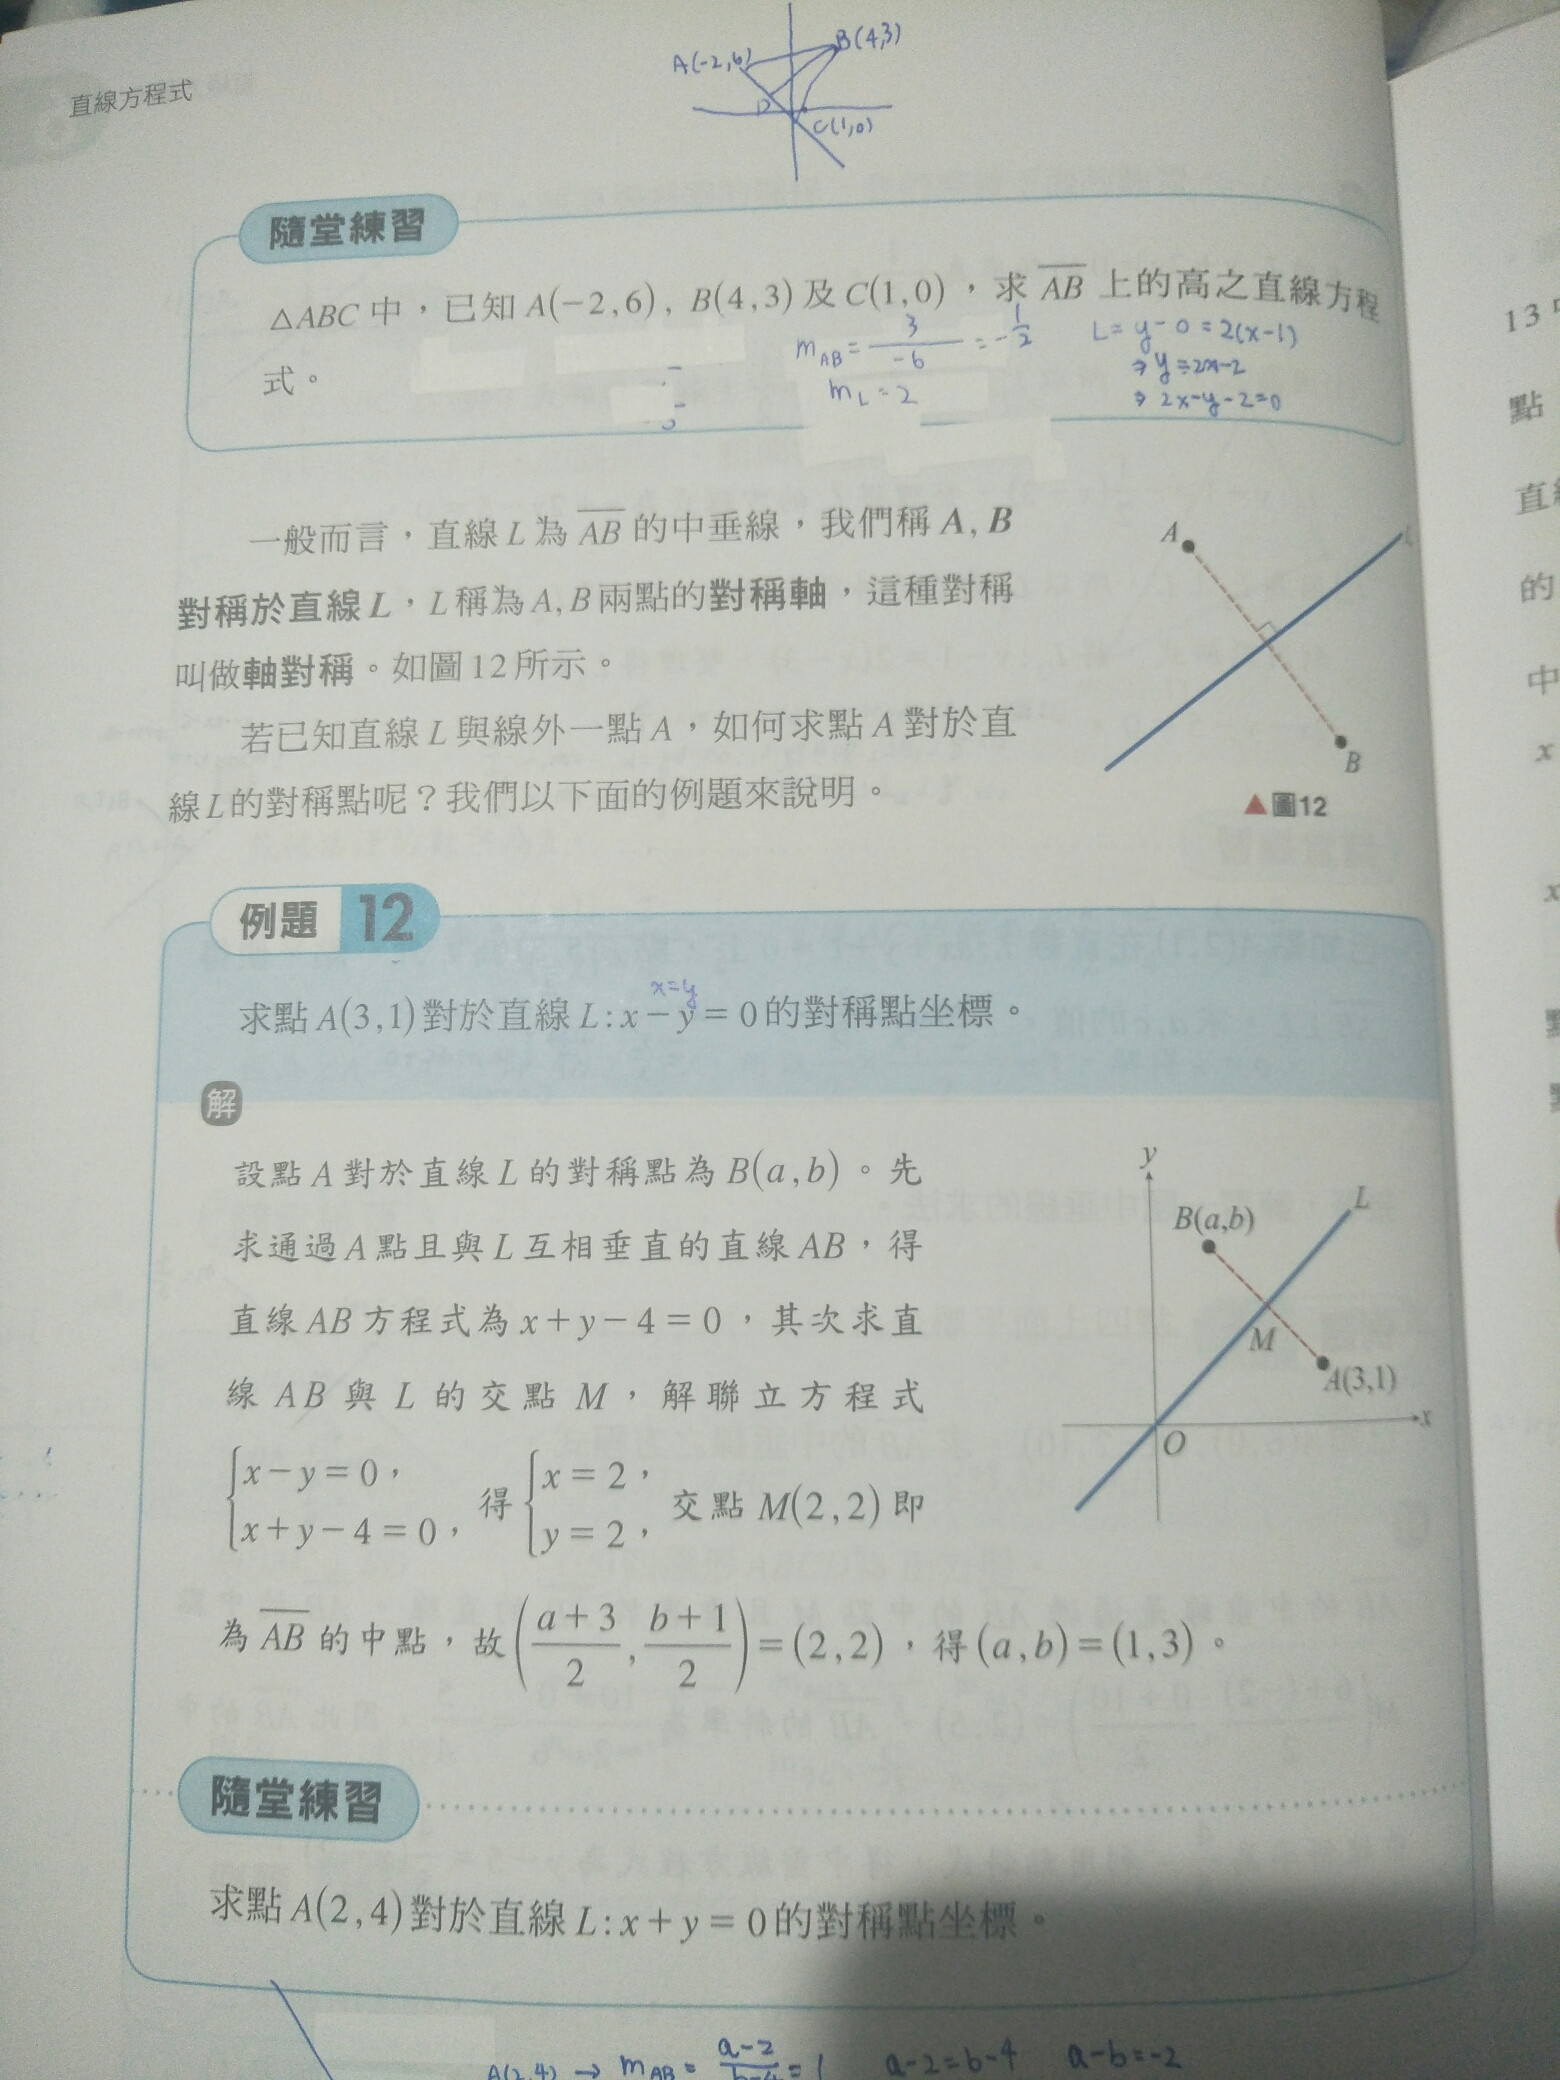 A(-2,6)
B(4,3)
D
C(1,0)
直線方程式
隨堂練習
△ABC 中，已知 A(−2,6), B(4,3)及 C(1,0)，求 AB 上的高之直線方程
式。
m_AB = 3/-6 = -1/2
m_L = 2
L = y-0 = 2(x-1)
⇒ y = 2x-2
⇒ 2x-y-2=0
一般而言，直線 L 為 AB 的中垂線，我們稱 A, B
對稱於直線 L，L 稱為 A, B 兩點的對稱軸，這種對稱
叫做軸對稱。如圖 12 所示。
若已知直線 L 與線外一點 A，如何求點 A 對於直
線 L 的對稱點呢？我們以下面的例題來說明。
A
B
▲圖12
例題 12
x=y
求點 A(3,1)對於直線 L: x − y = 0 的對稱點坐標。
解
設點 A 對於直線 L 的對稱點為 B(a,b)。先
求通過 A 點且與 L 互相垂直的直線 AB，得
直線 AB 方程式為 x + y − 4 = 0，其次求直
線 AB 與 L 的交點 M，解聯立方程式
{x − y = 0， x + y − 4 = 0， 得 {x = 2， y = 2， 交點 M(2,2) 即
為 AB 的中點，故 ((a+3)/2, (b+1)/2) = (2,2)，得 (a,b) = (1,3)。
y
B(a,b)
L
M
A(3,1)
x
O
隨堂練習
求點 A(2,4)對於直線 L: x + y = 0 的對稱點坐標。
A(2,4) → m_AB = a-2/b-4 = 1
a-2=b-4
a-b=-2
13
點
的
中
x
x